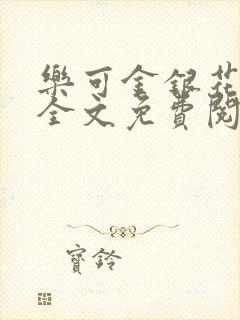 樂可金銀花
全文免費閱
寶鈴